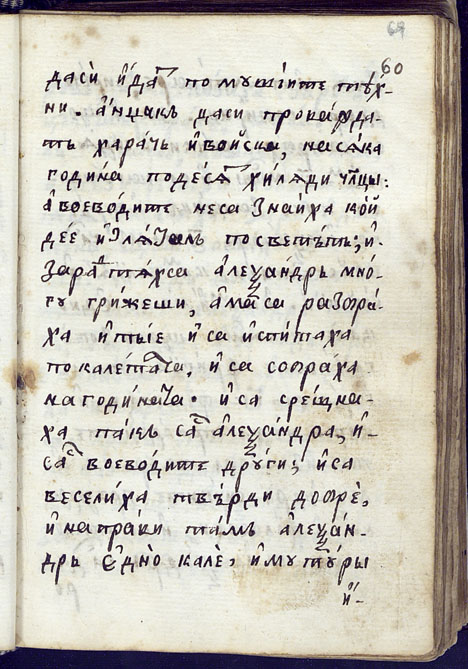 60
даси и҆да̑ помꙋшїите тꙋх-
ни. а҆нцакъ даси прова́жда-
тъ хара́чь и҆во́йска, насѧ́ка
годи́на подесѧ̑ хилѧ́ди чл҃цы:
а҆воеводите неса знаиха ко́й
де́е и҆ лѧ́залъ посветътъ; и҆-
зара̑ тѧ́хса а҆леѯа́ндръ мно́-
гꙋ гри́жеши, а҆ма̑са разбра́-
ха и҆тые и҆са испи́таха
покале́та̑а, и҆са собра́ха
нагоди́на̑а. и҆са сре́щна-
ха пакъ са̑ а҆леѯа́ндра, и҆-
са̑ воеводите дрꙋ́ги; и҆са
весели́ха твъ́рди добре̑,
и҆напра́ви та́мъ а҆леѯа́н-
дръ е҆дно̀ кале̑, и҆мꙋтꙋ́ры
и҆-